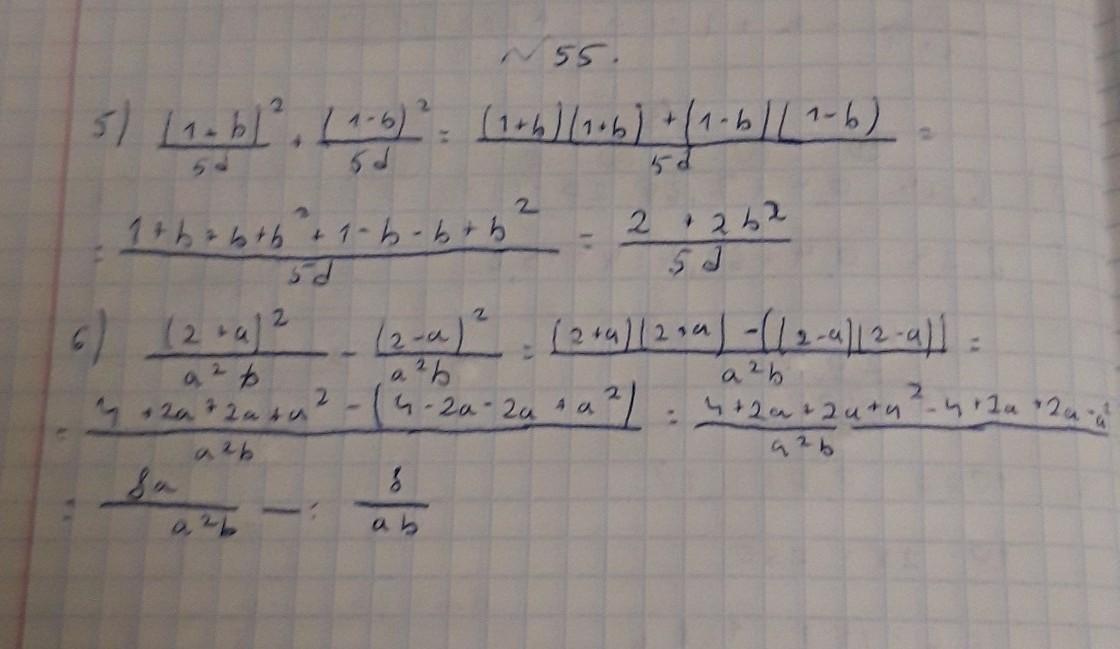 № 55.
5) (1+b)²/5d + (1-b)²/5d = ((1+b)(1+b) + (1-b)(1-b))/5d =
= (1+b+b+b²+1-b-b+b²)/5d = (2 + 2b²)/5d
6) (2+a)²/a²b - (2-a)²/a²b = ((2+a)(2+a) - ((2-a)(2-a)))/a²b =
= (4+2a+2a+a² - (4-2a-2a+a²))/a²b = (4+2a+2a+a²-4+2a+2a-a²)/a²b
= 8a/a²b = 8/ab